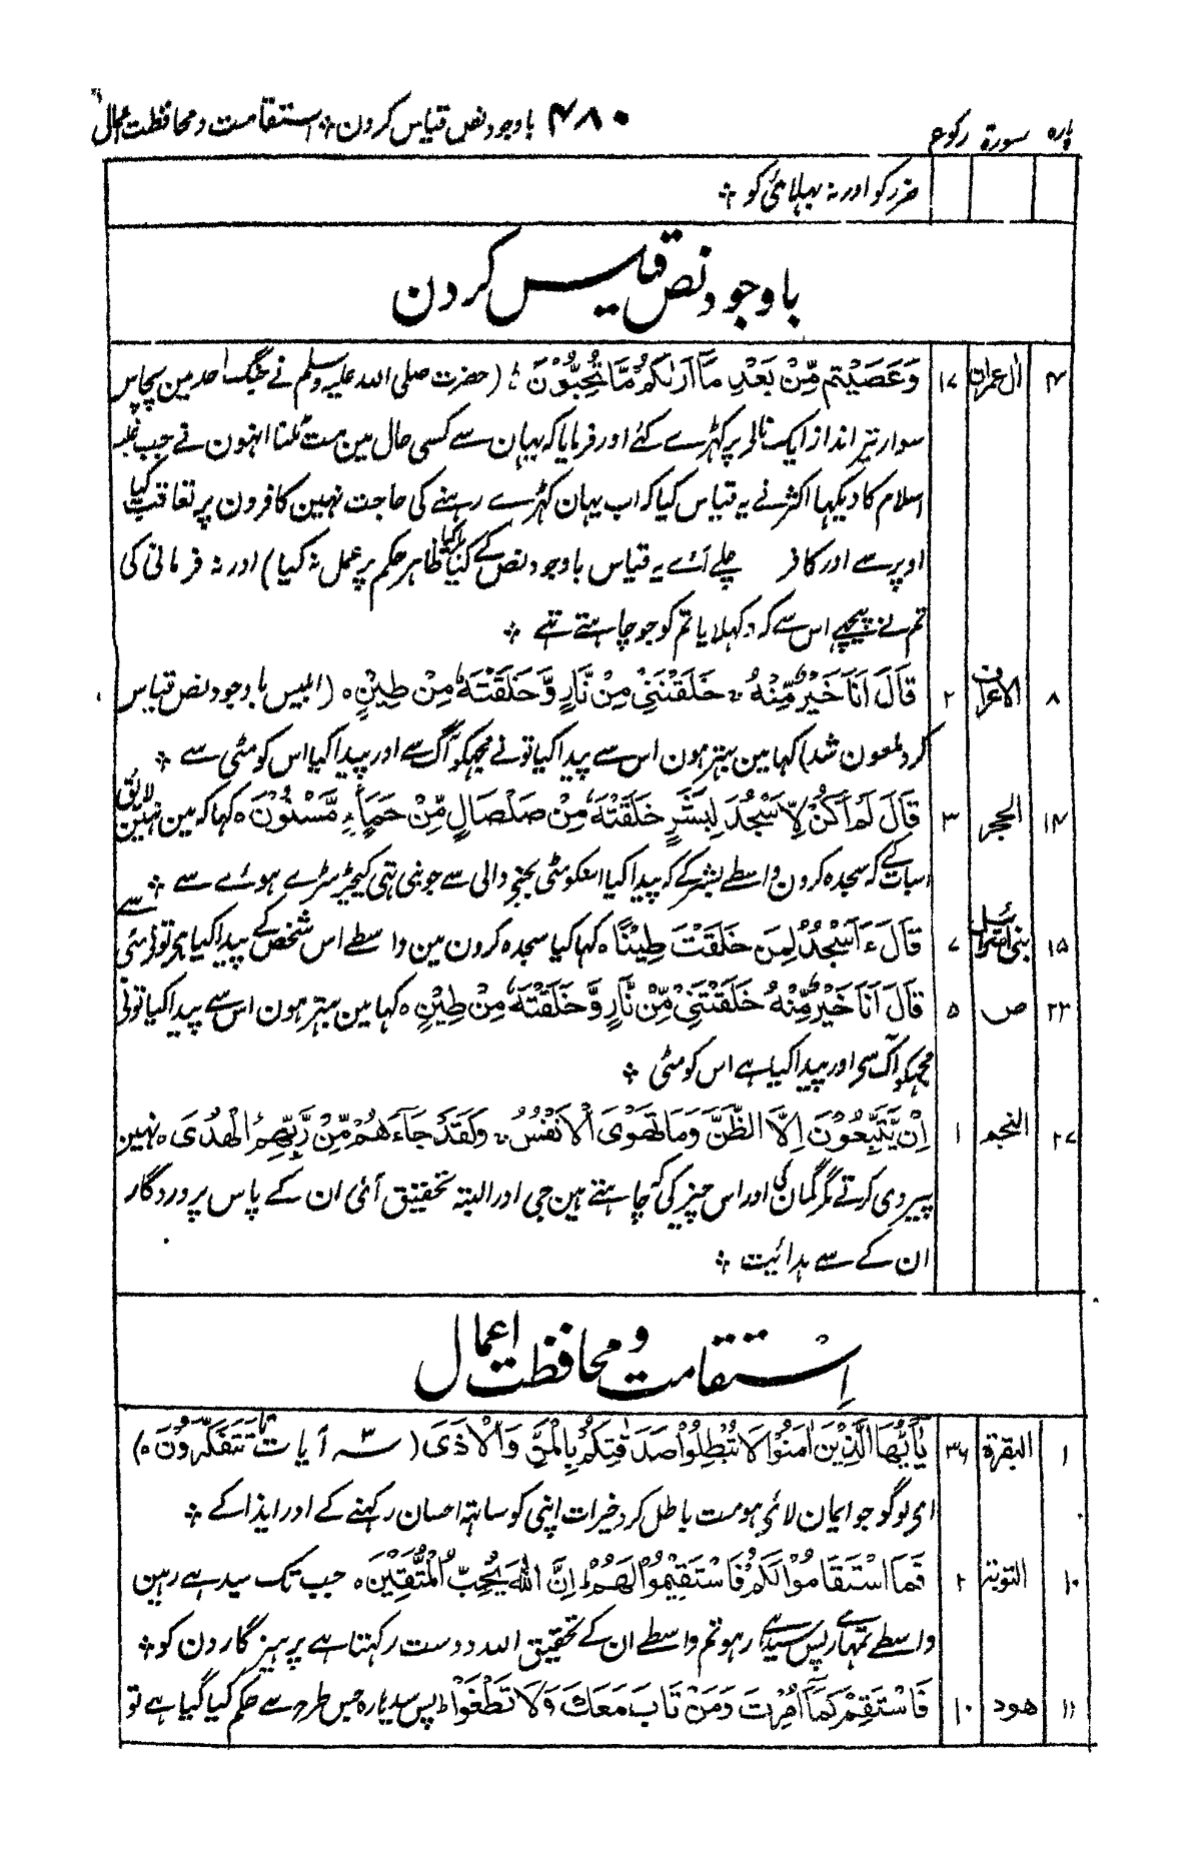 پارہ سورۃ رکوع ۴۸۰ باوجود نص قیاس کردن ؞ استقامت و محافظت اعمال
ضرر کو اور نہ بھلائی کو ؞
باوجود نص قیاس کردن
۴ اٰل عمران ۱۷ وَعَصَيْتُمْ مِّنْۢ بَعْدِ مَآ اَرٰىكُمْ مَّا تُحِبُّوْنَ ؕ (حضرت صلی اللہ علیہ وسلم نے جنگ احد مین پچاس
سوار تیر انداز ایک نالے پر کہڑے کئے اور فرمایا کہ یہان سے کسی حال مین مت ٹلنا انہون نے جب غلبہ
اسلام کا دیکہا اکثر نے یہ قیاس کیا کہ اب یہان کہڑے رہنے کی حاجت نہین کافرون پر تعاقب کیا
اوپر سے اور کافر چلے آئے یہ قیاس باوجود نص کے کیا گیا ظاہر حکم پر عمل نہ کیا) اور نہ فرمانی کی
تم نے پیچہے اس سے کہ دکہلایا تم کو جو چاہتے تہے ؞
۸ الاعراف ۲ قَالَ اَنَا خَيْرٌ مِّنْهُ ۚ خَلَقْتَنِيْ مِنْ نَّارٍ وَّخَلَقْتَهٗ مِنْ طِيْنٍ ہ (ابلیس باوجود نص قیاس
کرد ملعون شد) کہا مین بہتر ہون اس سے پیدا کیا تونے مجہکو آگ سے اور پیدا کیا اس کو مٹی سے ؞
۱۴ الحجر ۳ قَالَ لَمْ اَكُنْ لِّاَسْجُدَ لِبَشَرٍ خَلَقْتَهٗ مِنْ صَلْصَالٍ مِّنْ حَمَاٍ مَّسْنُوْنَ ہ کہا کہ مین نہین لائق
اسبات کے کہ سجدہ کرون واسطے بشر کے کہ پیدا کیا اسکو مٹی بجنے والی سے جو بنی تہی کیچڑ سڑے ہوئے سے ؞
۱۵ بنی اسرائیل ۷ قَالَ ءَاَسْجُدُ لِمَنْ خَلَقْتَ طِيْنًا ہ کہا کیا سجدہ کرون مین واسطے اس شخص کے پیدا کیا ہے تونے مٹی سے
۲۳ ص ۵ قَالَ اَنَا خَيْرٌ مِّنْهُ خَلَقْتَنِيْ مِنْ نَّارٍ وَّخَلَقْتَهٗ مِنْ طِيْنٍ ہ کہا مین بہتر ہون اس سے پیدا کیا تونی
مجہکو آگ سے اور پیدا کیا ہے اس کو مٹی ؞
۲۷ النجم ۱ اِنْ يَّتَّبِعُوْنَ اِلَّا الظَّنَّ وَمَا تَهْوَى الْاَنْفُسُ ۚ وَلَقَدْ جَآءَهُمْ مِّنْ رَّبِّهِمُ الْهُدٰى ہ نہین
پیروی کرتے مگر گمان کی اور اس چیز کی کہ چاہتے ہین جی اور البتہ تحقیق آئی ان کے پاس پروردگار
ان کے سے ہدائیت ؞
اِستقامت و محافظت اعمال
۱ البقرۃ ۳۶ يٰٓاَيُّهَا الَّذِيْنَ اٰمَنُوْا لَا تُبْطِلُوْا صَدَقٰتِكُمْ بِالْمَنِّ وَالْاَذٰى (۳ سہ آیات تا تَتَفَكَّرُوْنَ ہ)
ای لوگو جو ایمان لائے ہو مت باطل کرو خیرات اپنی کو ساتہ احسان رکہنے کے اور ایذا کے ؞
۱۰ التوبۃ ۲ فَمَا اسْتَقَامُوْا لَكُمْ فَاسْتَقِيْمُوْا لَهُمْ ؕ اِنَّ اللّٰهَ يُحِبُّ الْمُتَّقِيْنَ ہ جب تک سیدہے رہین
واسطے تمہارے پس سیدہے رہو تم واسطے ان کے تحقیق اللہ دوست رکہتا ہے پرہیزگارون کو ؞
۱۱ ھود ۱۰ فَاسْتَقِمْ كَمَآ اُمِرْتَ وَمَنْ تَابَ مَعَكَ وَلَا تَطْغَوْا ؕ پس سیدہا رہ جس طرح سے حکم کیا گیا ہے تو